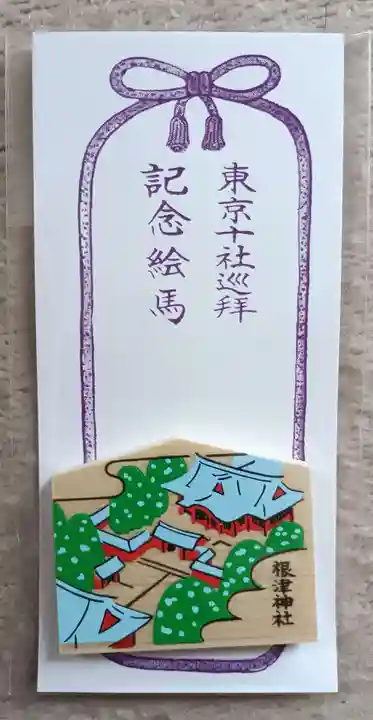 東京十社巡拜
記念絵馬
根津神社